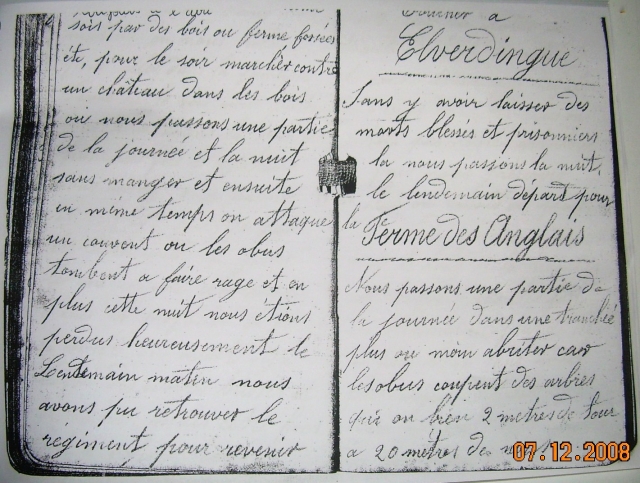 sois par des bois ou ferme forcées
etc, pour le soir marcher contre
un château dans les bois
ou nous passons une partie
de la journée et la nuit
sans manger et ensuite
en même temps on attaque
un couvent ou les obus
tombent a faire rage et en
plus cette nuit nous étions
perdus heureusement le
Lendemain matin nous
avons pu retrouver le
régiment pour revenir
tourner a
Elverdingue
Sans y avoir laisser des
morts blessés et prisonniers
la nous passons la nuit,
le lendemain départ pour
la Ferme des Anglais
Nous passons une partie de
la journée dans une tranchée
plus ou moin abriter car
les obus coupent des arbres
qui on bien 2 mètres de tour
a 20 mètres de
07.12.2008